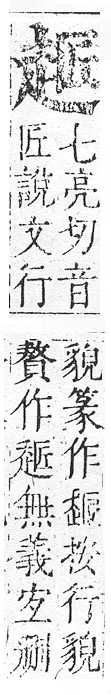 七亮切音
匠說文行
貌篆作按行貌
贅作無義宐刪